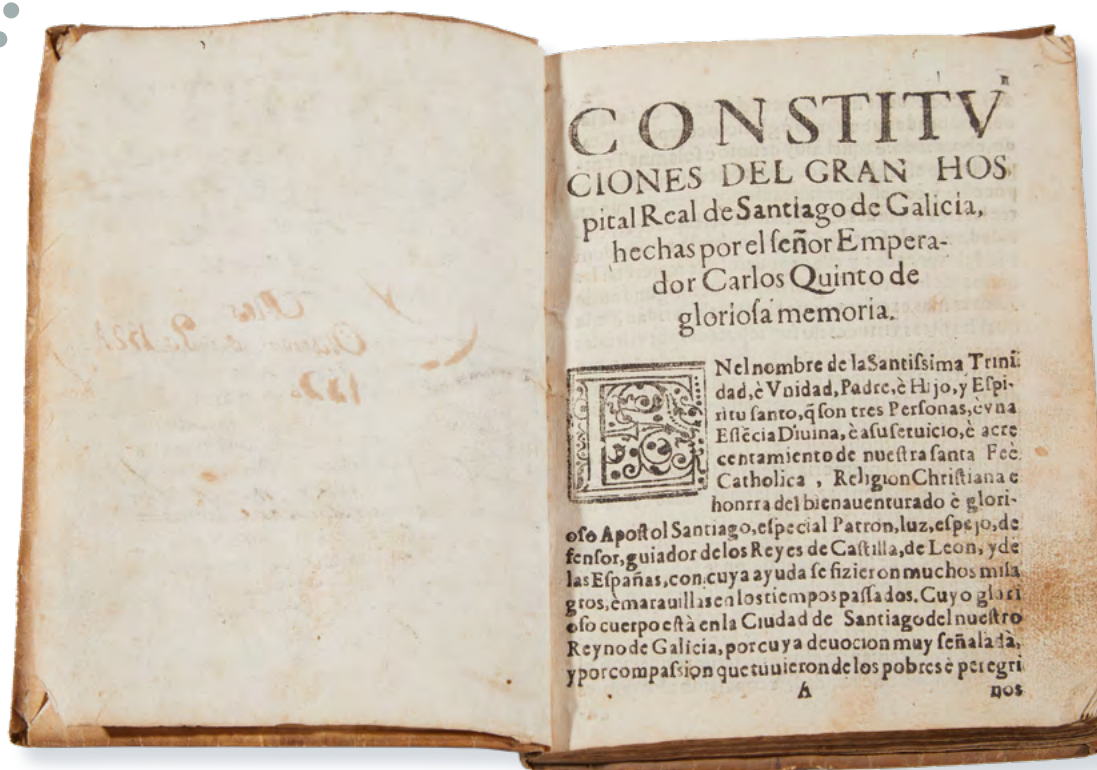 CONSTITV
CIONES DEL GRAN HOS
pital Real de Santiago de Galicia,
hechas por el ſeñor Empera-
dor Carlos Quinto de
glorioſa memoria.
EN el nombre de la Santiſsima Trini
dad, è Vnidad, Padre, è Hijo, y Eſpi-
ritu ſanto, q̃ ſon tres Perſonas, è vna
Eſſẽcia Diuina, è a ſu ſeruicio, è acre
centamiento de nueſtra ſanta Feè
Catholica, Religion Chriſtiana e
honrra del bienauenturado è glori-
oſo Apoſtol Santiago, eſpecial Patron, luz, eſpejo, de
fenſor, guiador de los Reyes de Caſtilla, de Leon, y de
las Eſpañas, con cuya ayuda ſe fizieron muchos mila
gros, è marauillas en los tiempos paſſados. Cuyo glori
oſo cuerpo eſtà en la Ciudad de Santiago del nueſtro
Reyno de Galicia, por cuya deuocion muy ſeñalada,
y por compaſsion que tuuieron de los pobres è peregri
A nos